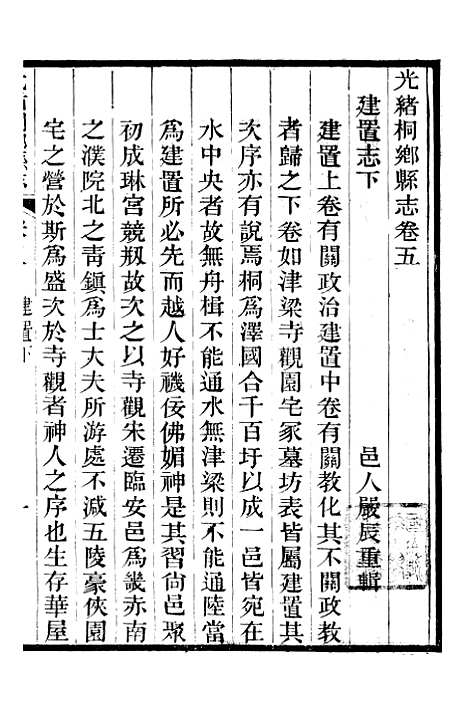 光緒桐鄉縣志卷五
建置志下
邑人嚴辰重輯
建置上卷有關政治建置中卷有關教化其不關政教
者歸之下卷如津梁寺觀園宅冢墓坊表皆屬建置其
次序亦有說焉桐為澤國合千百圩以成一邑皆宛在
水中央者故無舟楫不能通水無津梁則不能通陸當
為建置所必先而越人好禨佞佛媚神是其習尙邑聚
初成琳宮競剏故次之以寺觀宋遷臨安邑為畿赤南
之濮院北之靑鎭為士大夫所游處不減五陵豪俠園
宅之營於斯為盛次於寺觀者神人之序也生存華屋
建置下
一